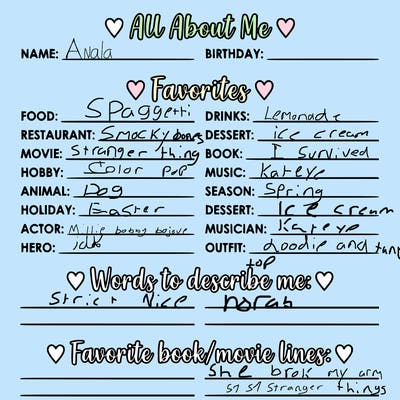 All About Me
NAME: Anala BIRTHDAY:
Favorites
FOOD: Spaggetti DRINKS: Lemonade
RESTAURANT: Smocky bones DESSERT: ice cream
MOVIE: Stranger thing BOOK: I Survived
HOBBY: Color pop MUSIC: Kateye
ANIMAL: Dog SEASON: Spring
HOLIDAY: Easter DESSERT: Ice cream
ACTOR: Millie bobby MUSICIAN: Kateye
HERO: idk OUTFIT: doodie and tank
top
Words to describe me:
Strict Nice
Favorite book/movie lines:
She brok my arm
S1 Stranger things